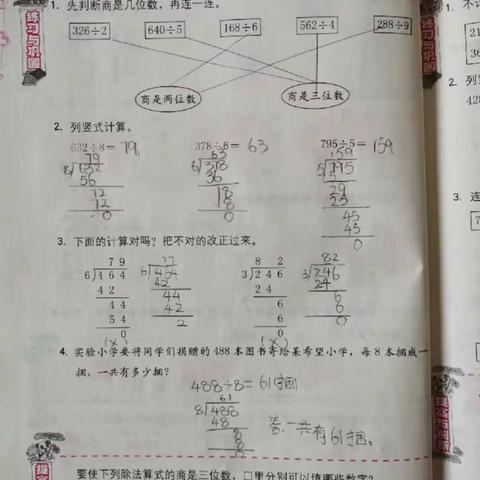 1. 先判断商是几位数，再连一连。
326÷2 640÷5 168÷6 562÷4 288÷9
商是两位数 商是三位数
2. 列竖式计算。
632÷8= 79 378÷6= 63 795÷5= 159
79 63 159
8 632 6 378 5 795
56 36 5
72 18 29
72 18 25
0 0 45
45
0
3. 下面的计算对吗？把不对的改正过来。
79 77 82 82
6 464 6 464 3 246 3 246
42 42 24 24
44 44 6 6
54 42 6 6
0 2 0 0
(×) (×)
4. 实验小学要将同学们捐赠的 488 本图书寄给某希望小学，每 8 本捆成一
捆，一共有多少捆？
488÷8=61捆
61
8 488
48
8
8
0
答：一共有61捆。
要使下列除法算式的商是三位数，口里分别可以填哪些数字？
练习与巩固
练习与巩固
提高与创新
1. 不
2. 列
428
3. 连